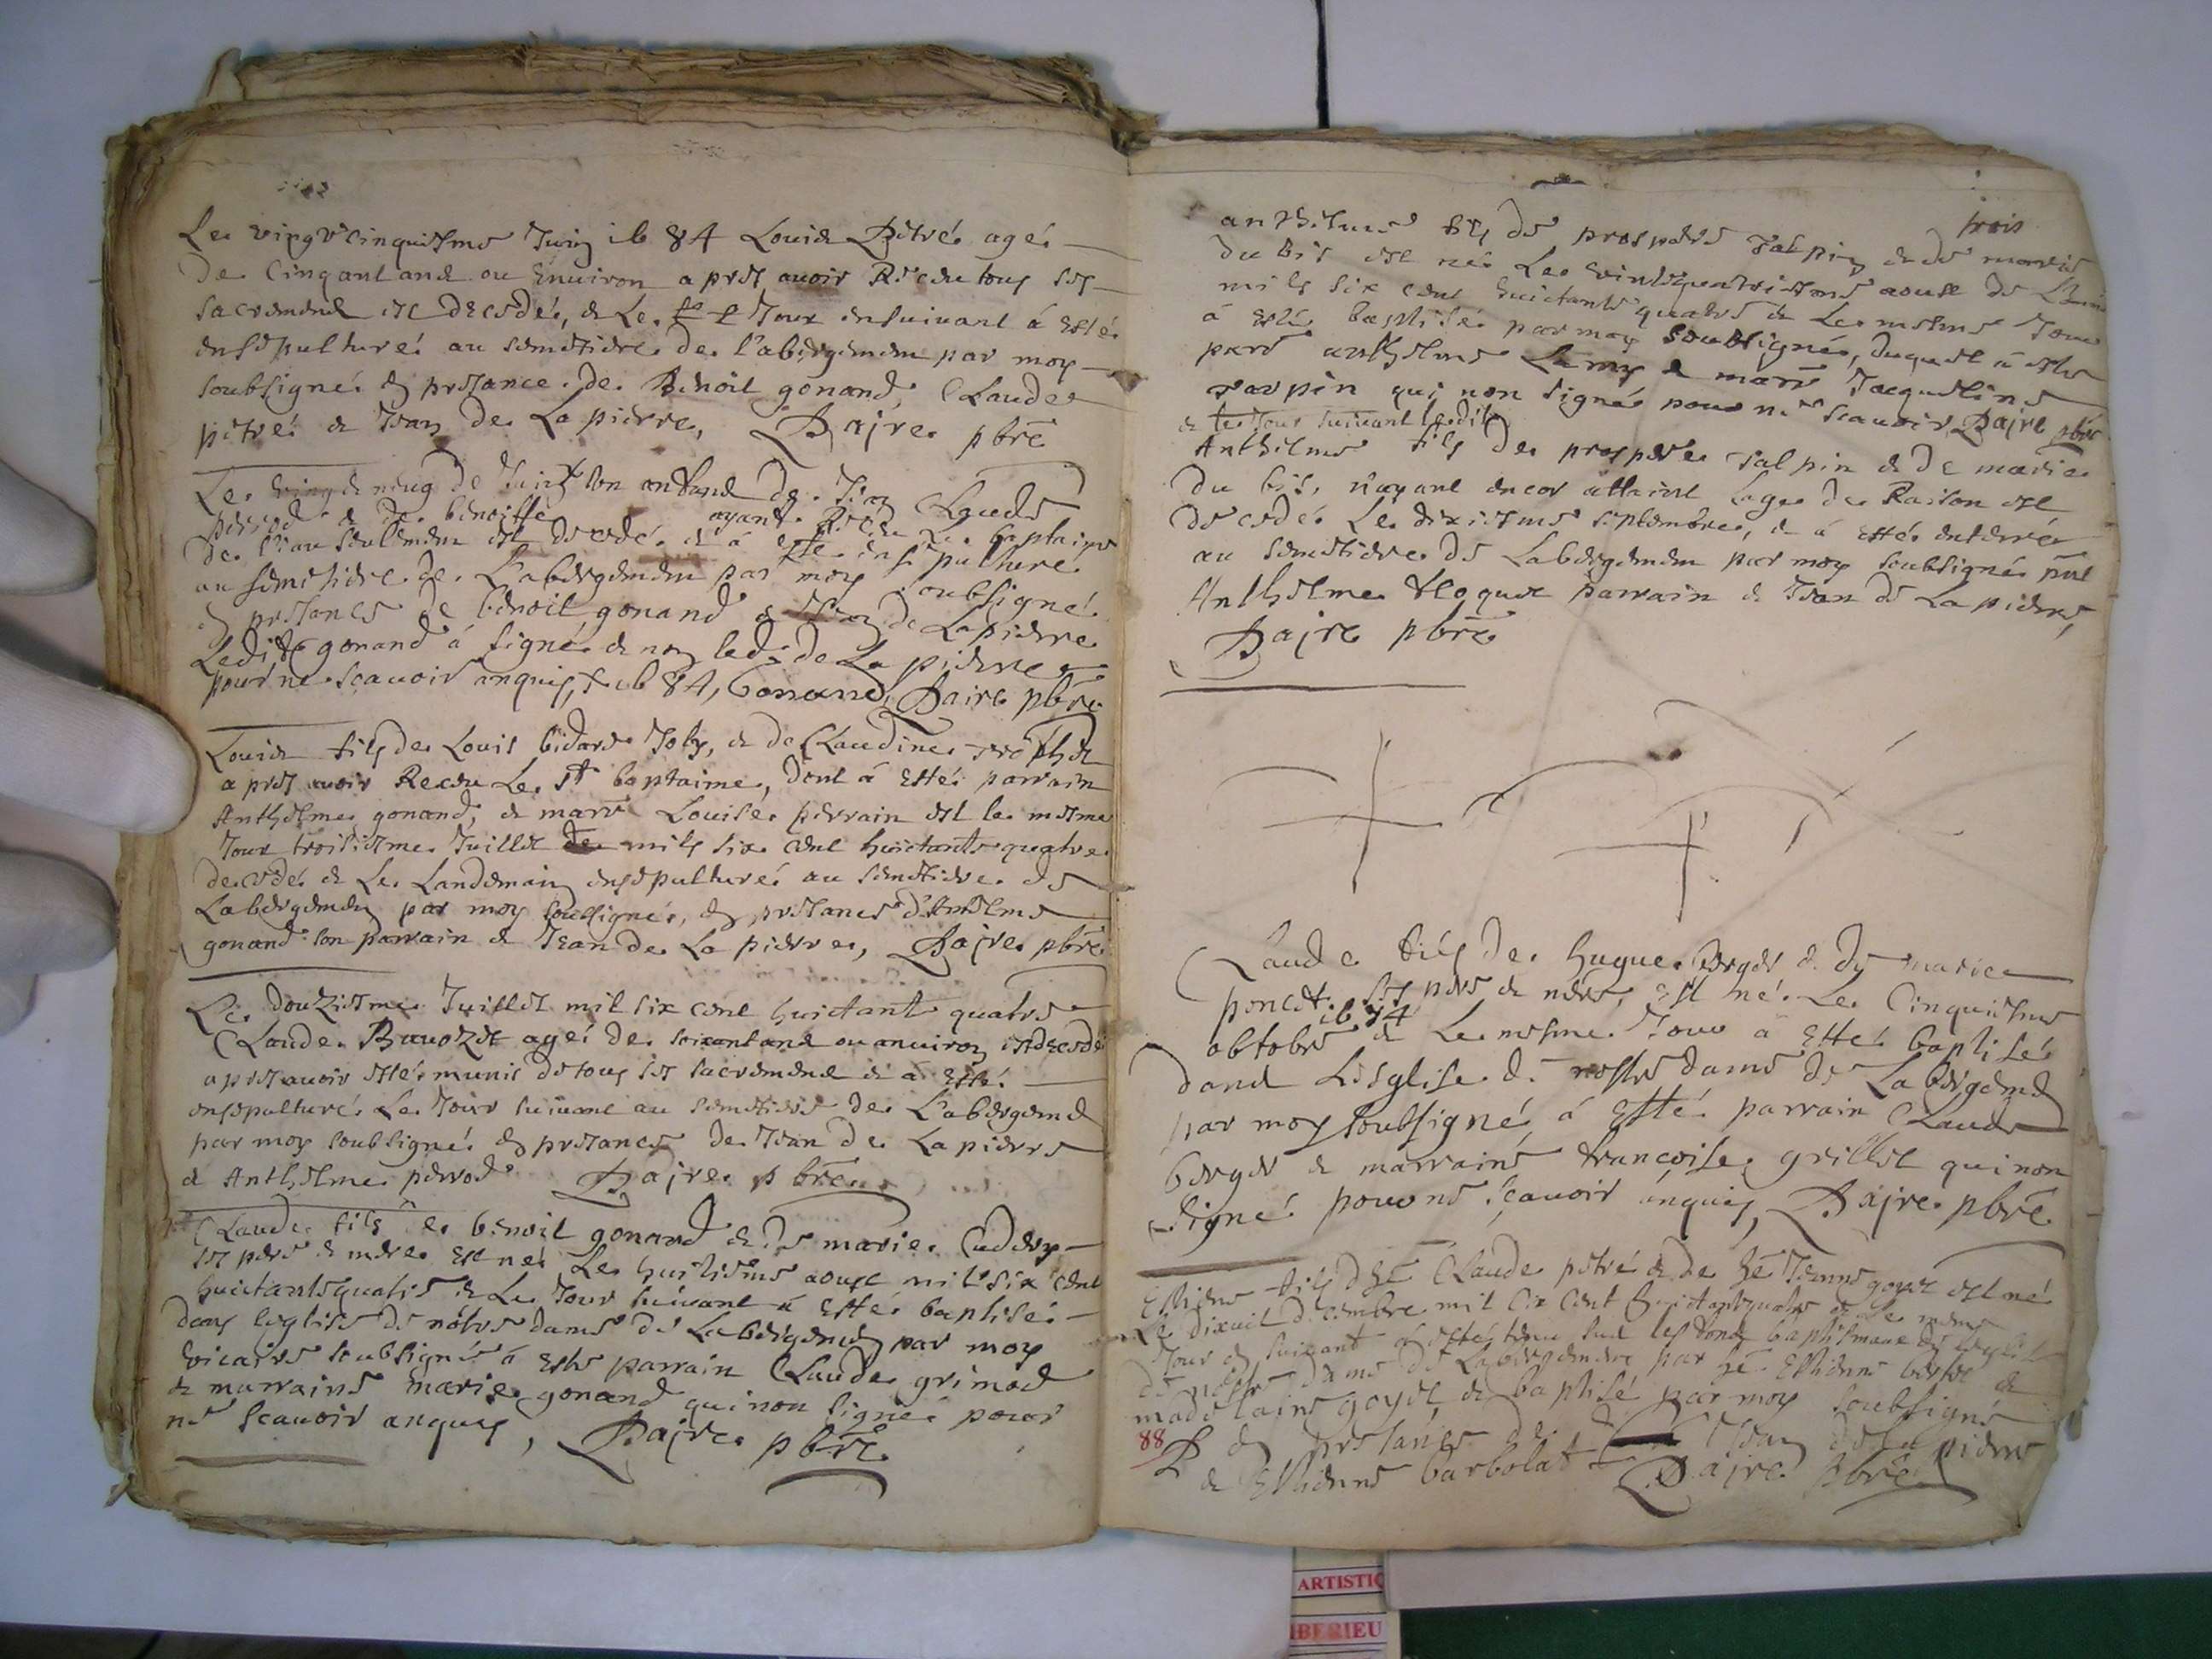 Le vingt cinquiesme Juin 1684 Louis Pitré agé
de Cinqant ans ou Environ apres avoir Receu tous ses
sacremens est decedé, & Le Jour ensuivant á esté
ensepulturé au semetiere de l'abergement par moy
soubsigné en presance de Benoit gonand, Claude
pitré & Jean de La pierre, Bajre pbre
Le vingt & neuf de Juin Un enfant de Claude
perrod & de benoitte ayant Receu Le baptaime
de l'eau seulement est decedé & á esté ensepulturé
au semetiere de L'abergement par moy soubsigné
en presance de benoit gonand & Jean de Lapierre
Ledit gonand á signé & non led. de La pierre
pour ne scavoir enquis, 1684, Gonand, Baire pbre
Louis fils de Louis bidard Joly, & de Claudine
apres avoir Receu Le st baptaime, dont á esté parrain
Anthelme gonand, & marr Louise perrain est le mesme
Jour troisiesme Juillet mils six cent huictante quatre
decedé & Le Landemain ensepulturé au semetiere de
Labergement par moy soubsigné, en presance d'Anthelme
gonand son parrain & Jean de La pierre, Bajre pbre
Le douzziesme Juillet mil six cent huictant quatre
Claude agé de soixantans ou anviron est decedé
apres avoir esté munis de tous ses sacremens & á esté
ensepulturé Le Jour suivant au semetiere de L'abergement
par moy soubsigné en presance de Jean de La pierre
& Anthelme perrod Bajre pbre
Claude fils de benoit gonand & de marie
ses pere & mere est né Le huitiesme aoust mil six cent
huictantequatre & Le Jour suivant á esté baptisé
dans leglise de nôtre dame de Labergement par moy
vicaire soubsigné á esté parrain Claude grimod
& marraine marie gonand qui non signé pour
ne scavoir enquis, Bajre pbre
trois
anthelme fils de prospere Talpin & de marie
du bis est né Le vintequatriesme aoust de L'année
mils six cent huictante quatre & Le mesme Jour
á esté baptisé par moy soubsigné, duquel á esté
parr anthelme Lamy & marr Jacqueline
qui non signé pour ne scavoir Bajre pbre
& le Jour suivant ledit
Anthelme fils de prospere Talpin & de marie
du bis, n'ayant encor attaint Lage de Raison est
decedé Le dixiesme septembre, & á esté enterré
au semetiere de Labergement par moy soubsigné pnt
Anthelme parrain & Jean de La pierre,
Bajre pbre
Claude fils de hugue berger & de marie
poncet ses pere & mere, est né Le Cinquiesme
octobre 1684 & Le mesme Jour á esté baptisé
dans Lesglise de nostre dame de Labergement
par moy soubsigné á esté parrain Claude
berger & marraine francoise grillet qui non
signé pour ne scavoir enquis, Bajre pbre
Estiene fils d'he Claude pitré & de he Jeanne goyet est né
Le dixuit decembre mil six cent huictantquatre & Le mesme
Jour suivant á esté tenu sur les fonds baptismaux de leglise
de nostre dame de Labergement par he Estienne &
madelaine goyet & baptisé par moy soubsigné
88
en presance de Jean de La pierre
& Estienne barbolat Bajre pbre
ARTISTIC